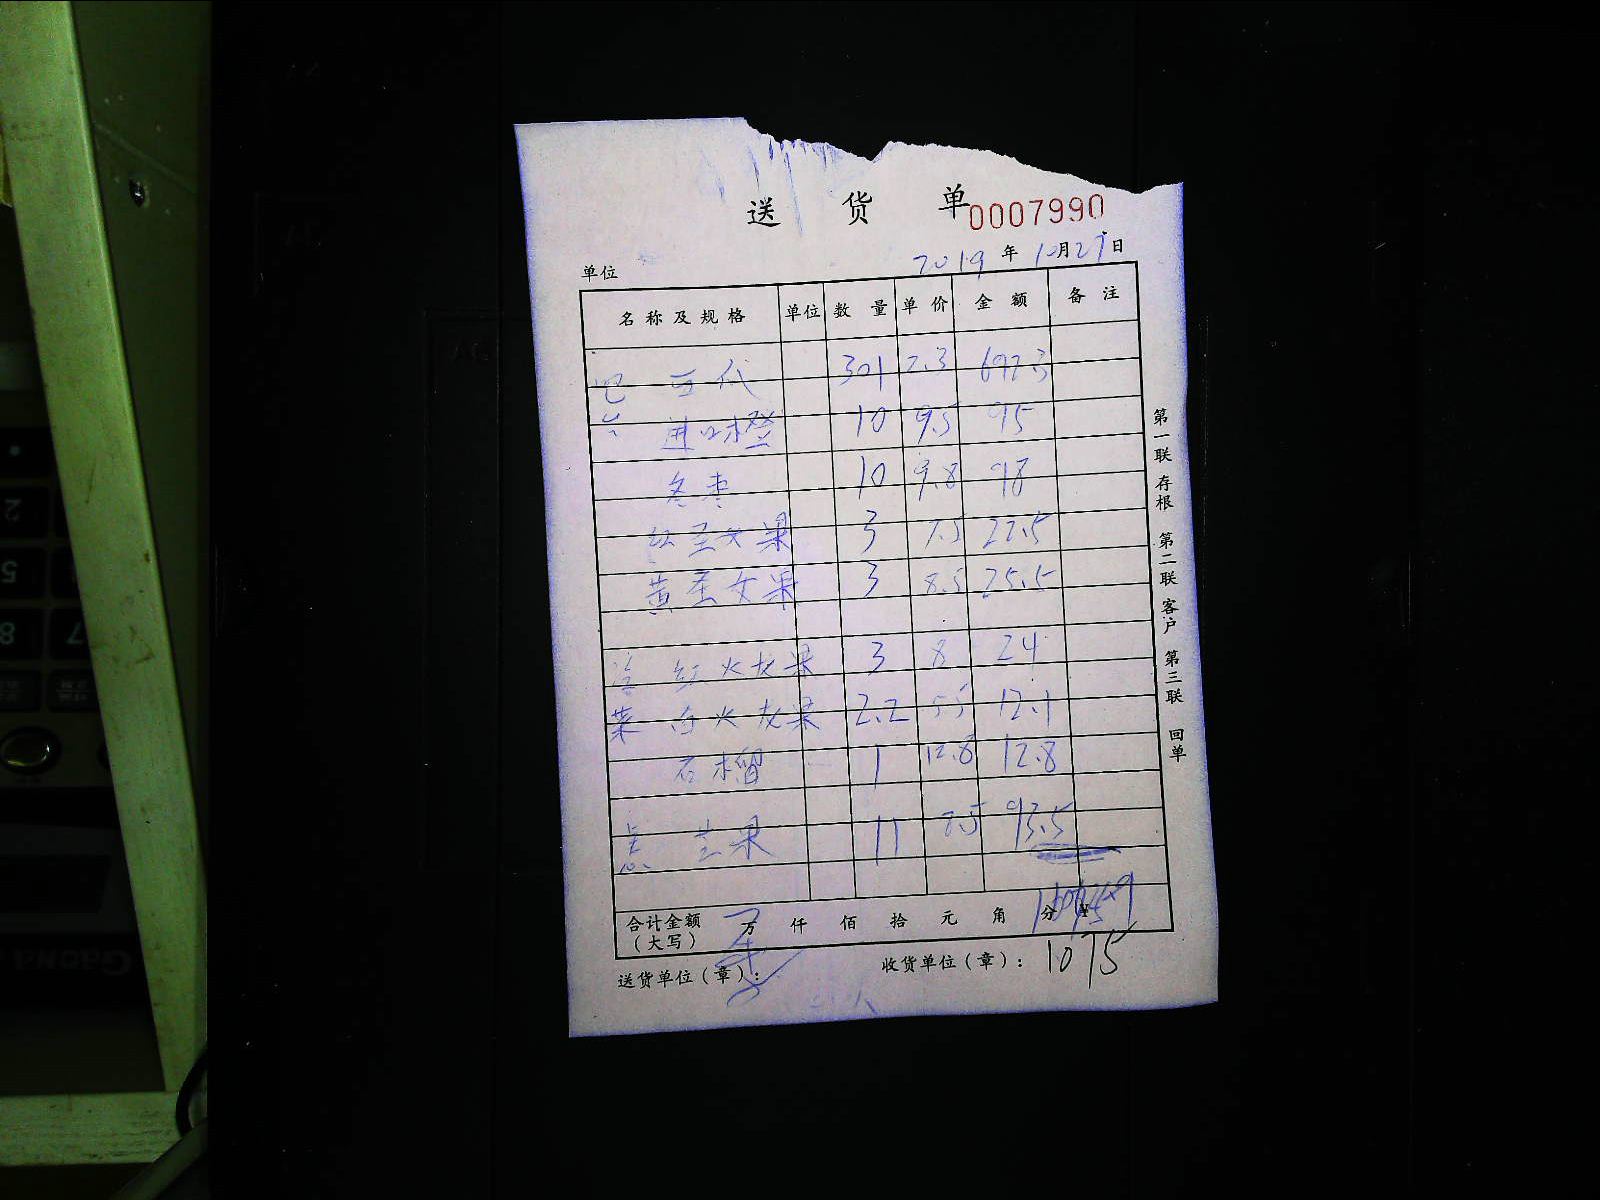 送 货 单 0007990
单位 2019 年 10月27日
名称及规格 单位 数量 单价 金额 备注
西代 301 2.3 692.3
进口橙 10 9.5 95
冬枣 10 9.8 98
红圣女果 3 7.5 22.5
黄圣女果 3 8.5 25.5
红火龙果 3 8 24
菜 白火龙果 2.2 5.5 12.1
石榴 1 12.8 12.8
芒果 11 8.5 93.5
合计金额 万 仟 佰 拾 元 角 分
（大写）
送货单位（章）： 收货单位（章）： 1075
第一联 存根 第二联 客户 第三联 回单